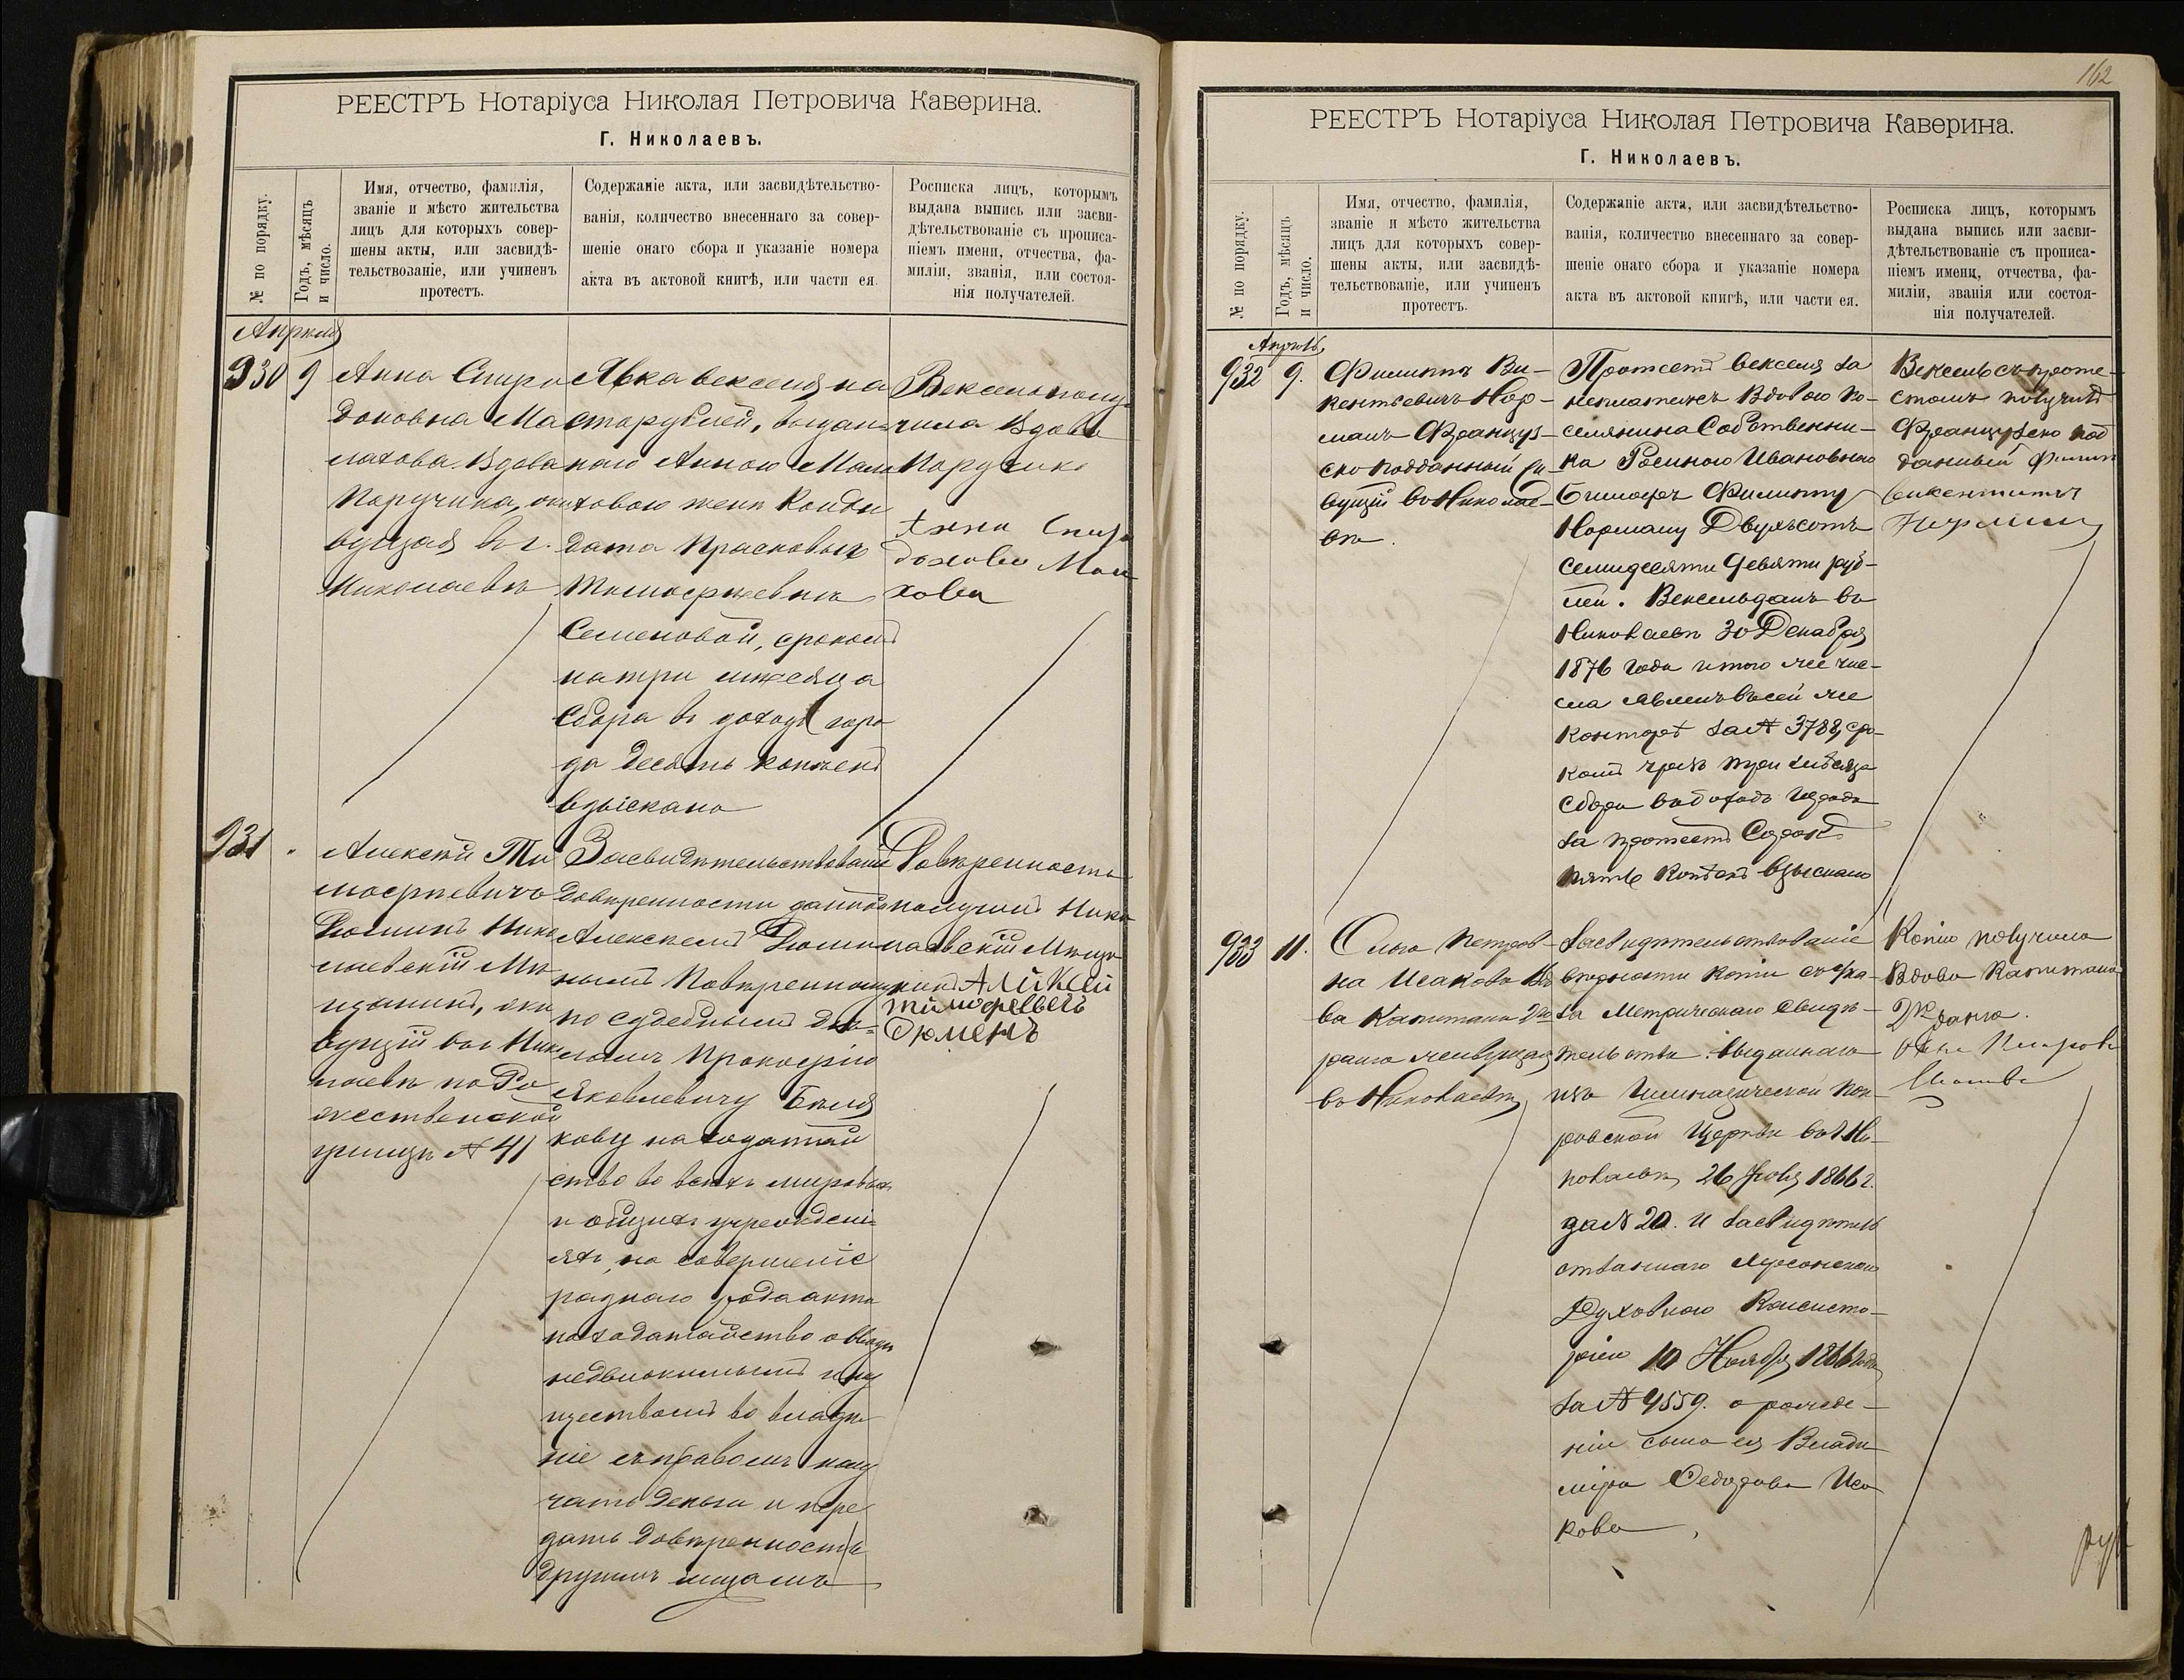 РЕЕСТРЪ Нотаріуса Николая Петровича Каверина.
Г. Николаевъ.
№ по порядку.
Годъ, мѣсяцъ
и число.
Имя, отчество, фамилія,
званіе и мѣсто жительства
лицъ для которыхъ совер-
шены акты, или засвидѣ-
тельствованіе, или учиненъ
протестъ.
Содержаніе акта, или засвидѣтельство-
ванія, количество внесеннаго за совер-
шеніе онаго сбора и указаніе номера
акта въ актовой книгѣ, или части ея.
Росписка лицъ, которымъ
выдана выпись или засви-
дѣтельствованіе съ прописа-
ніемъ имени, отчества, фа-
миліи, званія, или состоя-
нія получателей.
Апрѣля
930
9
Анна Спири
доновна Ма
лахова Вдова
Поручика, жи
вущая въ г.
Николаевѣ
Явка векселя на
сто рублей, выдан
наго Анною Мала
ховою женѣ Канди
дата Прасковьѣ
Тимофеевнѣ
Семеновой, срокомъ
на три мѣсяца
Сбора въ доходъ горо
да десять копѣекъ
взыскано
Вексель полу
чила Вдова
Поручика
Анна Спири
донова Мала
хова
931
Алексѣй Ти
мофеевичъ
Дюминъ Нико
лаевскій Мѣ
щанинъ, жи
вущій въ г. Нико
лаевѣ по Ро
жественской
улицѣ № 41
Засвидѣтельствованіе
довѣренности данной
Алексеемъ Дюми
нымъ Повѣренному
по судебнымъ дѣ-
ламъ Прокофію
Яковлевичу Бѣля
кову на ходатай
ство во всѣхъ мировыхъ
и общихъ учрежденi
яхъ, на совершеніе
разнаго рода акта
на ходатайство о вводѣ
недвижимымъ иму
ществомъ во владѣ
ніе съ правомъ полу
чать деньги и пере
дать довѣренность
другимъ лицамъ
Довѣренность
получилъ Нико
лаевскій Мѣща
нинъ Аликсей
Тимофеевечь
Дюменъ
162
РЕЕСТРЪ Нотаріуса Николая Петровича Каверина.
Г. Николаевъ.
№ по порядку.
Годъ, мѣсяцъ
и число.
Имя, отчество, фамилія,
званіе и мѣсто жительства
лицъ для которыхъ совер-
шены акты, или засвидѣ-
тельствованіе, или учиненъ
протестъ.
Содержаніе акта, или засвидѣтельство-
ванія, количество внесеннаго за совер-
шеніе онаго сбора и указаніе номера
акта въ актовой книгѣ, или части ея.
Росписка лицъ, которымъ
выдана выпись или засви-
дѣтельствованіе съ прописа-
ніемъ имени, отчества, фа-
миліи, званія или состоя-
нія получателей.
Апрѣль
932
9.
Филиппъ Ви-
кентьевичъ Нор-
манъ Француз-
ско подданный жи-
вущій въ Николае-
вѣ.
Протестъ векселя за
неплатежъ Вдовою по-
селянина Собственни-
ка Ивановною
Филиппу
Норману Двухъсотъ
семидесяти девяти руб-
лей. Вексель данъ въ
Николаевѣ 30 Декабря
1876 года и того же чис-
ла явленъ въ сей же
конторѣ за № 3788, сро-
комъ чрезъ три мѣсяца
Сбора въ доходъ города
за протестъ Сорокъ
пять копѣекъ взыскано
Вексель съ проте-
стомъ получилъ
Французско под
данный Филип
Викентьевичъ
Норман
933
11.
Ольга Петров-
на Исакова Вдо
ва Капитана 2го
ранга живущая
въ Николаевѣ
Засвидѣтельствованіе
вѣрности копіи съ ука-
за Метрическаго свидѣ-
тельства выданнаго
изъ Гимназической Пок-
ровской Церкви въ г. Ни-
колаевѣ, 26 Іюля 1866 г.
за № 20. и засвидѣтель
ствованнаго Херсонскою
Духовною Консисто-
ріею 10 Ноября 1866 года
за № 4559. о рожде-
ніи сына ея Влади
міра Федорова Иса
кова
Копію получила
Вдова Капитана
2го ранга.
Ольга Петровна
Исакова